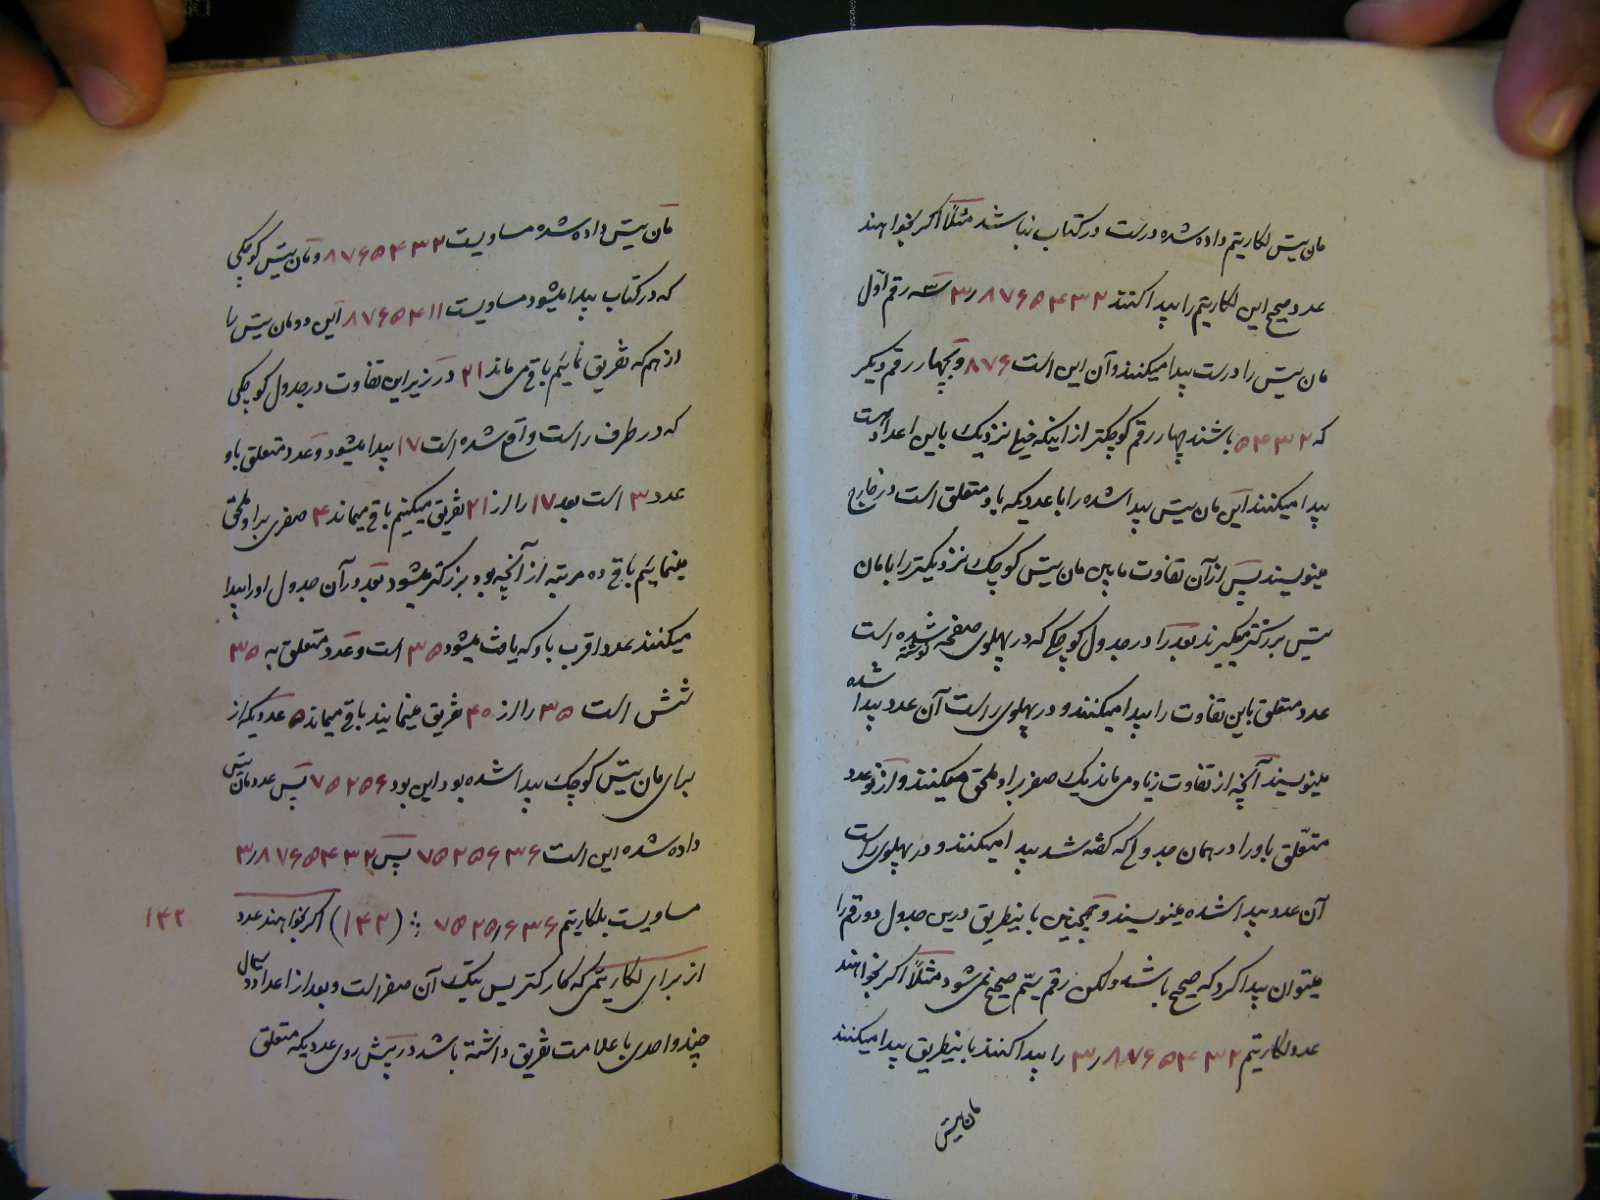 مان تیس لکاریتم داده شده درست در کتاب نباشد مثلاً اکر بخواهند
عدد صحیح این لکاریتم را پیدا کنند ۳٫۸۷۶۵۴۳۲ سه رقم اوّل
مان تیس را درست پیدا میکنند و آن این است ۸۷۶ و بچهار رقم دیکر
که ۵۴۳۲ باشند چهار رقم کوچکتر از اینکه خیلی نزدیک باین اعداد است
پیدا میکنند این مان تیس پیدا شده را با عددیکه باو متعلق است در خارج
مینویسند پس از آن تفاوت مابین مان تیس کوچک نزدیکتر را بامان
تیس بزرکتر میکیرند بعد را در جدول کوچکی که در پهلوی صفحه نوشته شده است
عدد متعلق باین تفاوت را پیدا میکنند و در پهلوی راست آن عدد پیدا شده
مینویسند آنچه از تفاوت زیاد می ماند یک صفر براو ملحق میکنند و از نو عدد
متعلّق باو را در همان جدولی که کفته شد پیدا میکنند و در پهلوی راست
آن عدد پیدا شده مینویسند و همچنین باینطریق در این جدول دو رقم را
میتوان پیدا کرد که صحیح باشد ولکن رقم سیّم صحیح نمی شود مثلاً اکر بخواهند
عدد لکاریتم ۳٫۸۷۶۵۴۳۲ را پیدا کنند باینطریق پیدا میکنند
مان تیس
مان تیس داده شده مساویست ۸۷۶۵۴۳۲ و مان تیس کوچکی
که در کتاب پیدا میشود مساویست ۸۷۶۵۴۱۱ این دو مان تیس را
از هم که تفریق نمائیم باقی می ماند ۲۱ در زیر این تفاوت در جدول کوچکی
که در طرف راست واقع شده است ۱۷ پیدا میشود و عدد متعلق باو
عدد ۳ است بعد ۱۷ را از ۲۱ تفریق میکنیم باقی میماند ۴ صفری براو ملحق
مینمائیم باقی ده مرتبه از آنچه بود بزرکتر میشود بعد در آن جدول او را پیدا
میکنند عدد اقرب باو که یافت میشود ۳۵ است و عدد متعلق به ۳۵
شش است ۳۵ را از ۴۰ تفریق مینمایند باقی میماند ۵ عددیکه از
برای مان تیس کوچک پیدا شده بود این بود ۷۵۲۵۶ پس عدد مان تیس
داده شده این است ۷۵۲۵۶۳۶ پس ۳٫۸۷۶۵۴۳۲
مساویست بلکاریتم ۷۵۲۵٫۶۳۶ ؛ (۱۴۲) اکر بخواهند عدد
۱۴۲
از برای لکاریتمی که کارکتریس تیک آن صفر است و بعد از اعداد
چند واحدی با علامت تفریق داشته باشد در پیش روی عددیکه متعلق